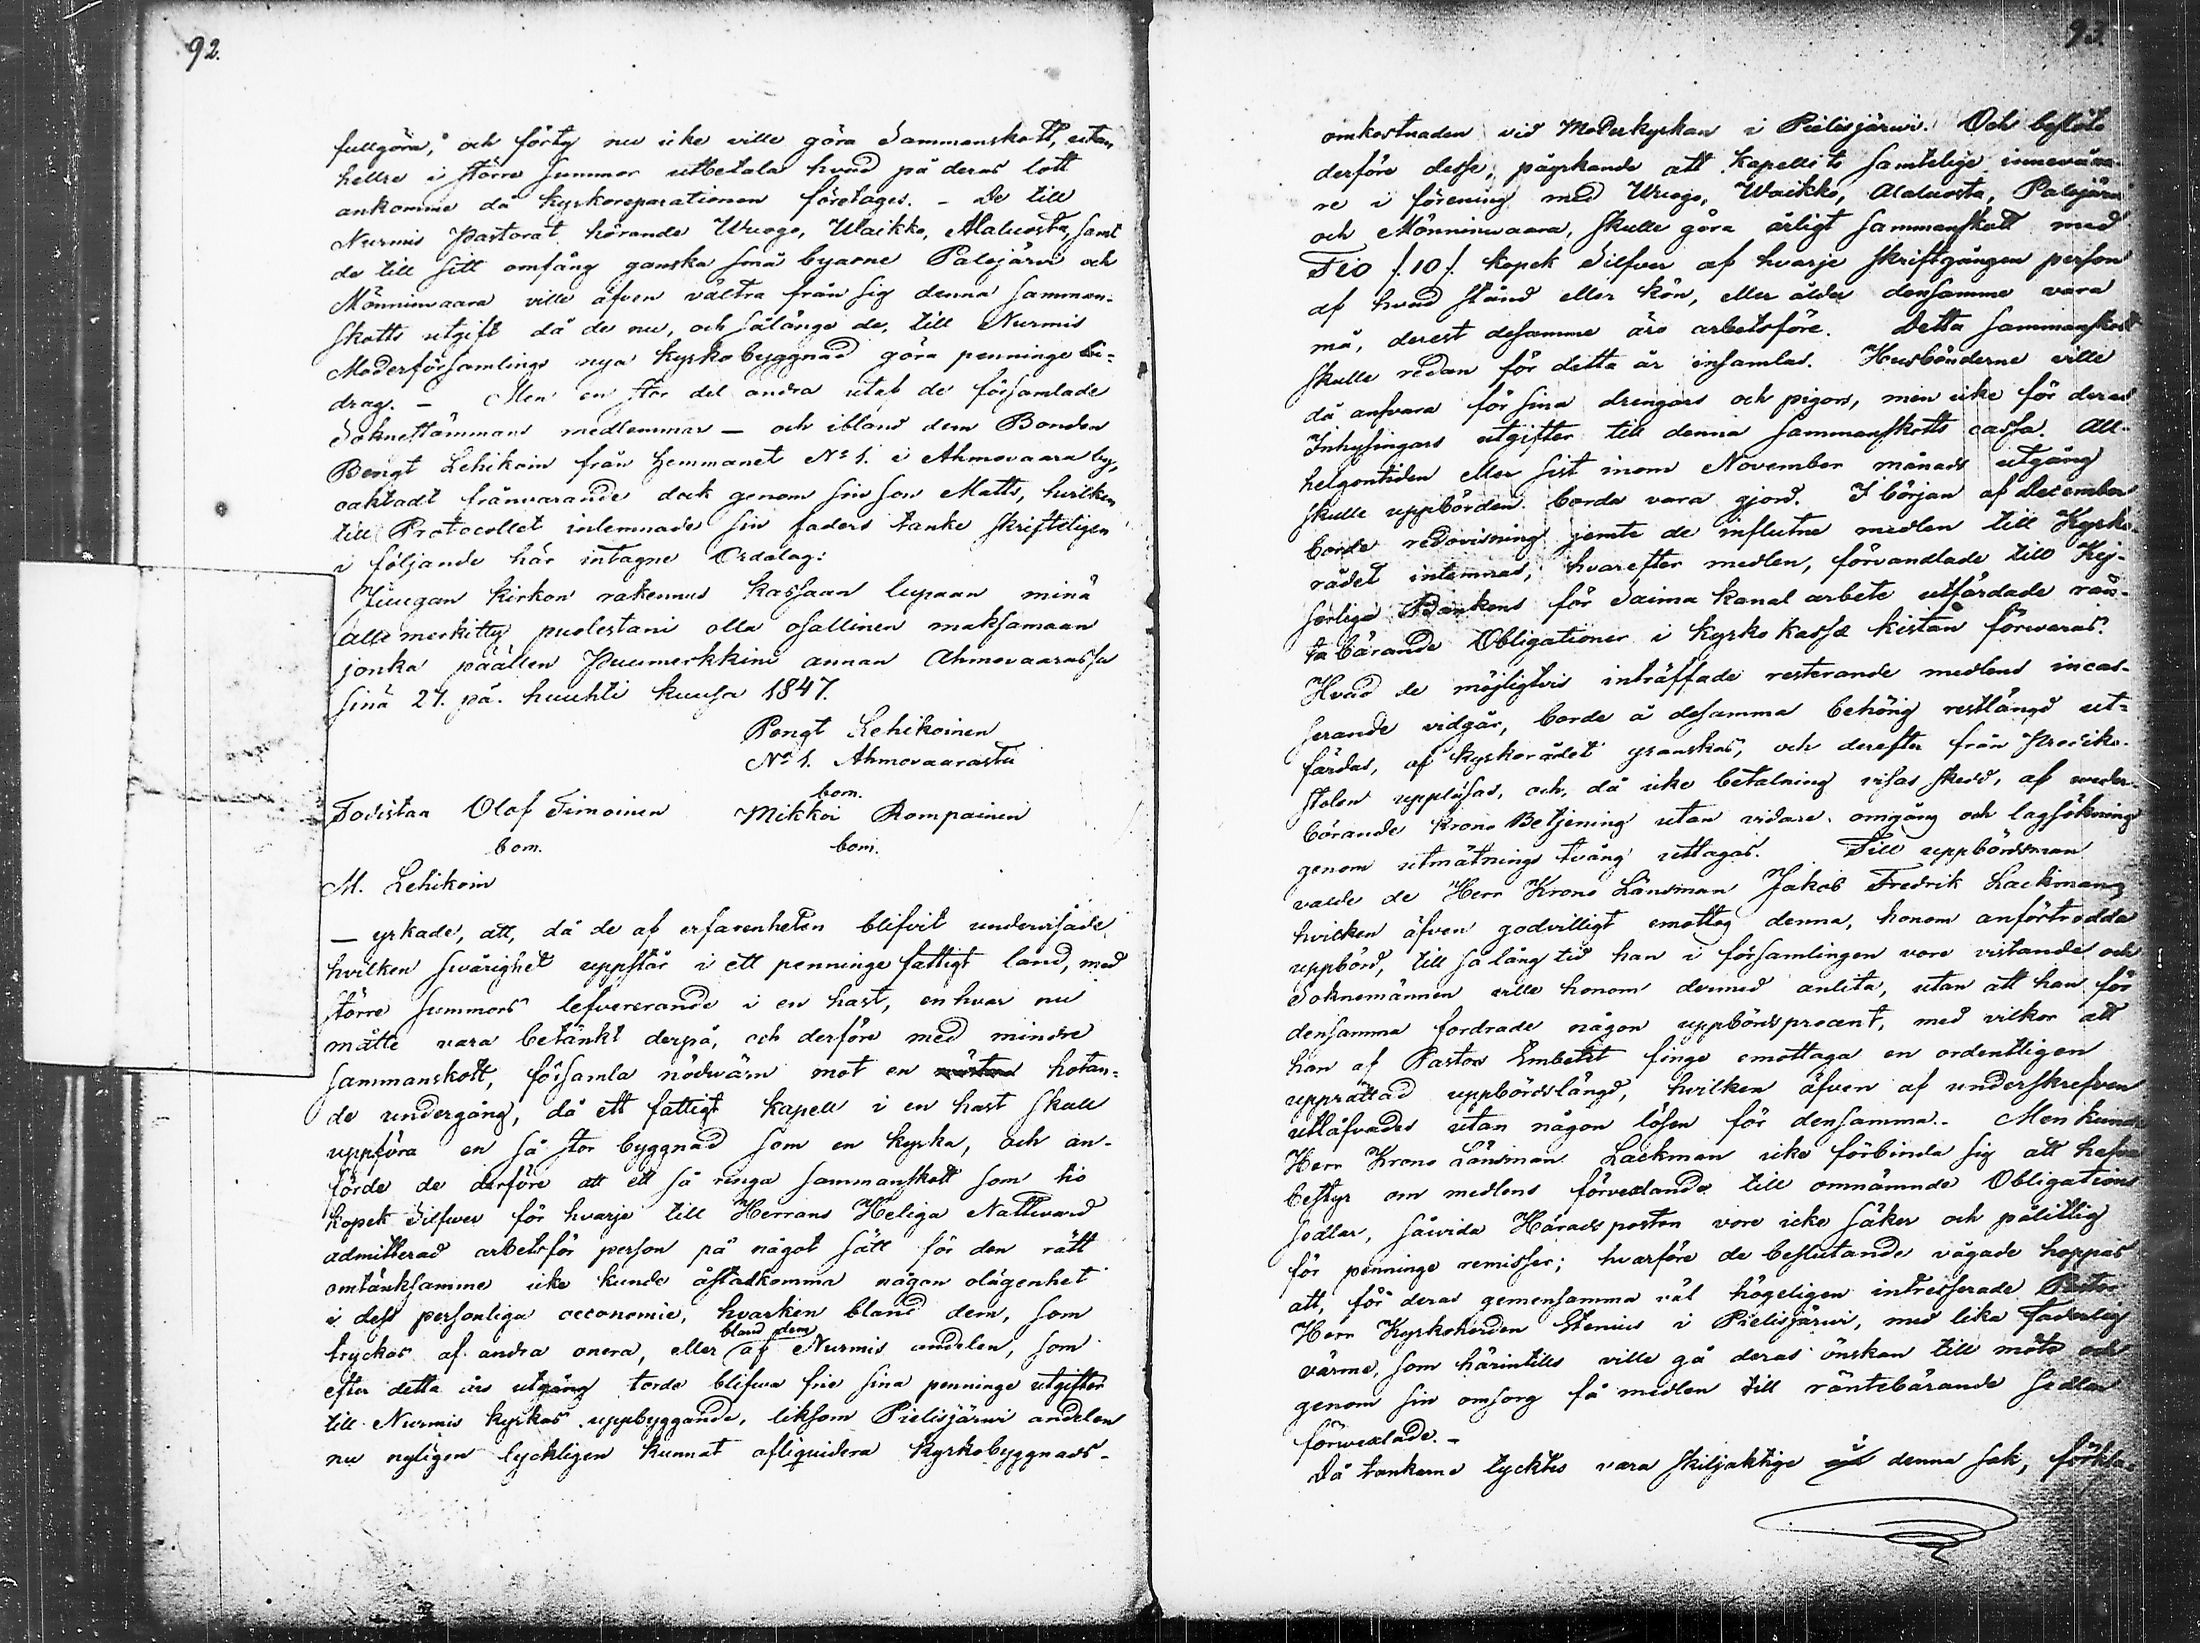 92.
fullgöra, och förty nu icke ville göra Sammanskott, utan
hellre i större Summor utbetala hvad på deras lott
ankomme då kyrkoreparationen företages. – De till
Nurmis Pastorat hörande Wuogo, Waikko, Alaluosta, samt
de till sitt omfång ganska små byarne Palojärvi och
Mönninvaara ville äfven vältra från sig denna Samman-
skotts utgift då de nu, och sålänge de, till Nurmis
Moderförsamlings nya kyrkobyggnad göra penninge bi-
drag. – Men en stor del andra utaf de församlade
Soknestämmans medlemmar – och ibland dem Bonden
Bengt Lehikoin från hemmanet N:o 1. i Ahmovaara by,
oaktadt frånvarande dock genom sin son Matts, hvilken
till Protocollet inlemnade sin faders tanke skrifteligen
i följande här intagne Ordalag:
Juugan kirkon rakennus kassaan lupaan minä
alle merkitty puolestani olla osallinen maksamaan
jonka päällen Puumerkkini annan Ahmovaarassa
sinä 27. pä. huuhti kuusa 1847.
Pengt Lehikoinen
N:o 1. Ahmovaarasta
bom.
Todistaa Olof Timoinen Mikkoi Rompainen
bom. bom.
M. Lehikoin
– yrkade, att, då de af erfarenheten blifvit undervisade
hvilken svårighet uppstår i ett penninge fattigt land, med
större summors lefvererande i en hast, en hvar nu
måtte vara betänkt derpå, och derföre med mindre
sammanskott, församla nödvärn mot en hotan-
de undergång, då ett fattigt kapell i en hast skall
uppföra en så stor byggnad som en kyrka, och an-
förde de derföre att ett så ringa sammanskott som tio
kopek Silfver för hvarje till Herrans Heliga Nattvard
admitterad arbetsför person på något sätt för den rätt
omtänksamme icke kunde åstadkomma någon olägenhet
i dess personliga oeconomie, hvarken bland dem, som
tryckas af andra onera, eller af bland dem Nurmis andelen, som
efter detta års utgång torde blifwa frie sina penninge utgifter
till Nurmis kyrkas uppbyggande, liksom Pielisjärwi andelen
nu nyligen lyckligen kunnat afliquidera kyrkobyggnads-
93.
omkostnaden vid Moderkyrkan i Pielisjärwi. Och beslöto
derföre desse, påyrkande att kapellets samtelige innevåna-
re i förening med Wuogo, Waikko, Alaluosta, Palojärvi
och Mönninvaara, skulle göra årligt sammanskott med
Tio /: 10 /: kopek Silfver af hvarje skriftgången person
af hvad stånd eller kön, eller ålder densamme vara
må, derest desamme äro arbetsföre. Detta sammanskott
skulle redan för detta år insamlas. Husbönderne ville
då ansvara för sina drengars och pigors, men icke för deras
Inhysingars utgifter till denna Sammanskotts cassa. All-
helgontiden eller sist inom November månads utgång
skulle uppbörden borda vara gjord. I början af December
borde redovisning jemte de influtne medlen till Kyrko
rådet inlemnas, hvarefter medlen, förvandlade till Kej-
serliga Bankens för Saima kanal arbete utfärdade rän-
ta bärande Obligationer i kyrko kassa kistan förwaras.
Hvad de möjligtvis inträffade resterande medlens incas-
serande vidgår, borde å desamma behörig restlängd ut-
färdas, af kyrkorådet granskas, och derefter från Prediko-
stolen uppläsas, och, då icke betalning visas skedd, af weder-
börande Krono Betjening utan vidare omgång och lagsökning
genom utmätnings tvång uttagas. Till uppbördsman
valde de Herr Krono Länsman Jakob Fredrik Lackman,
hvilken äfven godvilligt emottog denna, honom anförtrodda
uppbörd, till så lång tid han i församlingen vore vistande och
Soknemännen ville honom dermed anlita, utan att han för
densamma fordrade någon uppbördsprocent, med vilkor att
han af Pastors Embetet finge emottaga en ordentligen
upprättad uppbördslängd, hvilken äfven af underskrefven
utlåfvades utan någon lösen för densamma. – Men kunde
Herr Krono Länsman Lackman icke förbinda sig att hafva
bestyr om medlens förvexlande till omnämnde Obligations
sedlar, såvida Häradsposten vore icke säker och pålitlig
för penninge remisser; hvarföre de beslutande vågade hoppas
att, för deras gemensamma väl högeligen intresserade Pastor
Herr Kyrkoherden Stenius i Pielisjärwi, med lika faderlig
värme, som härintills ville gå deras önskan till möte och
genom sin omsorg få medlen till räntebärande sedlar
förwexlade. –
Då tankarne tycktes vara skiljaktige i denna sak, förkla-